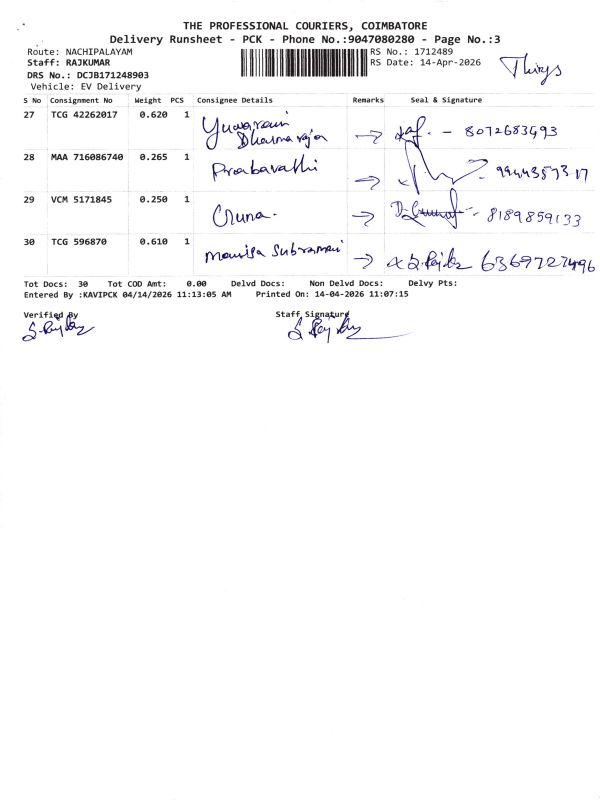 THE PROFESSIONAL COURIERS, COIMBATORE
Delivery Runsheet - PCK - Phone No.:9047080280 - Page No.:3
Route: NACHIPALAYAM
RS No.: 1712489
Staff: RAJKUMAR
RS Date: 14-Apr-2026
DRS No.: DCJB171248903
Vehicle: EV Delivery
S No Consignment No Weight PCS Consignee Details Remarks Seal & Signature
27 TCG 42262017 0.620 1 Yuvarani
Dharmaraja → - 8072683493
28 MAA 716086740 0.265 1 Prabavathi → - 9944357317
29 VCM 5171845 0.250 1 → - 8189859133
30 TCG 596870 0.610 1 Mounisa Subramani → 6369727496
Tot Docs: 30 Tot COD Amt: 0.00 Delvd Docs: Non Delvd Docs: Delvy Pts:
Entered By :KAVIPCK 04/14/2026 11:13:05 AM Printed On: 14-04-2026 11:07:15
Verified By Staff Signature